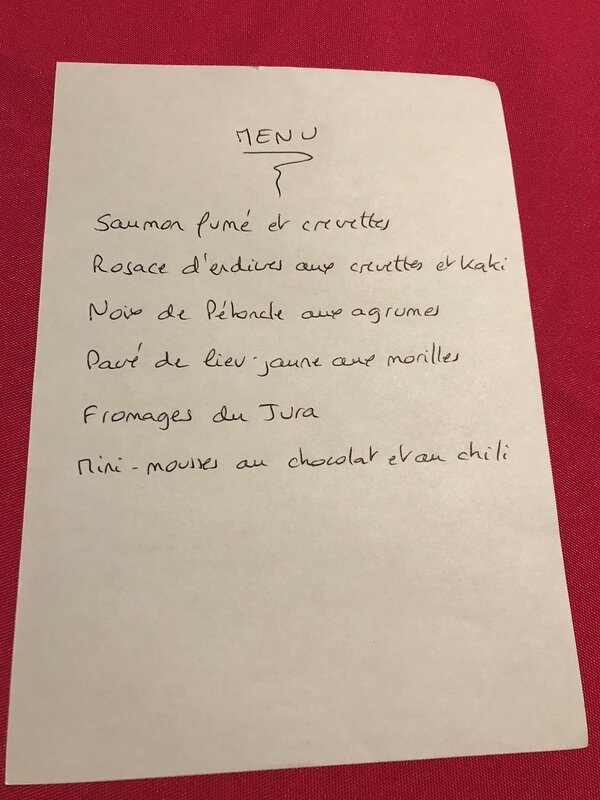 MENU
Saumon fumé et crevettes
Rosace d'endives aux crevettes et Kaki
Noix de Pétoncle aux agrumes
Pavé de lieu-jaune aux morilles
Fromages du Jura
Mini-mousses au chocolat et au chili